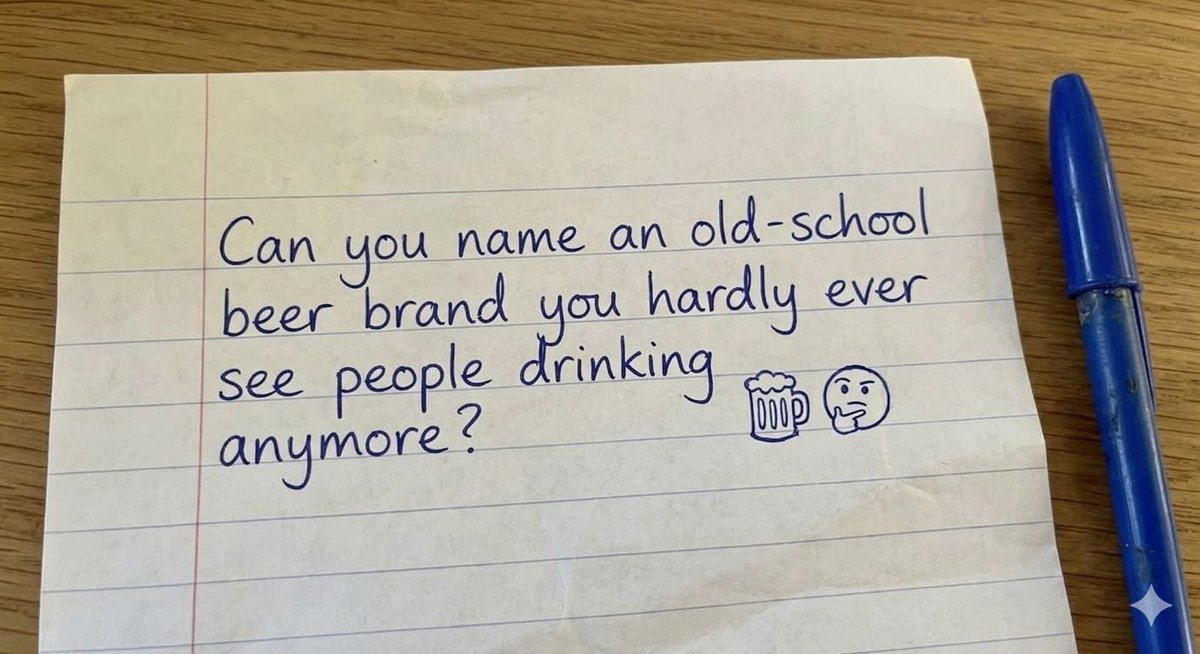 Can you name an old-school
beer brand you hardly ever
see people drinking 🍺🤔
anymore?